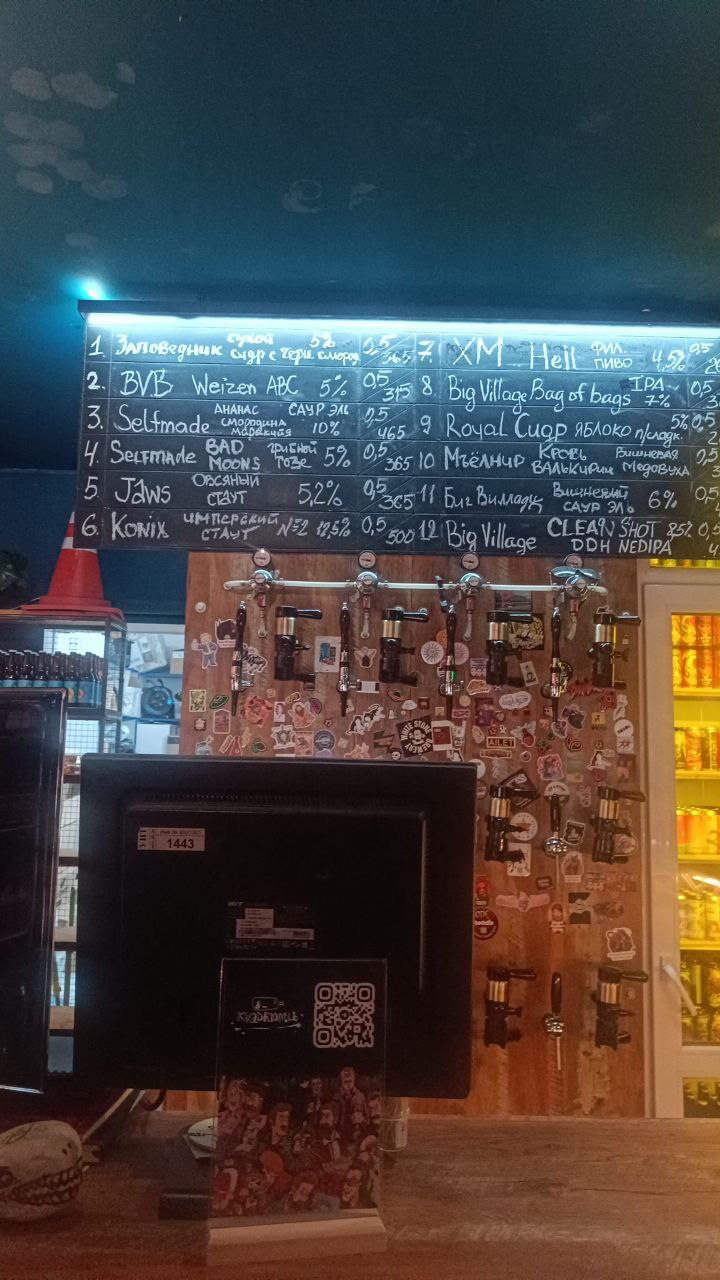 1. Заповедник сухой 5% 0,5
сидр с черн. смород 365
2. BVB Weizen ABC 5% 0,5 315
3. Selfmade ананас саур эль 0,5
смородина 10% 465
маракуйя
4. Selfmade BAD грибной 5% 0,5
MOONS гозе 365
5. Jaws овсяный 5,2% 0,5
стаут 365
6. Konix имперский №2 12,5% 0,5
стаут 500
7. ХМ Hell фил. 4,5% 0,5
пиво
8 Big Village Bag of bags IPA 0,5
7%
9 Royal Сидр яблоко 5% 0,5
п/сладк.
10 Мьёлнир Кровь вишневая 0,5
валькирии медовуха
11 Биг Вилладж вишневый 6% 0,5
саур эль
12 Big Village CLEAN SHOT 8,5% 0,5
DDH NEDIPA
WHITE STONE
BREWERY
AILET
1443
acer